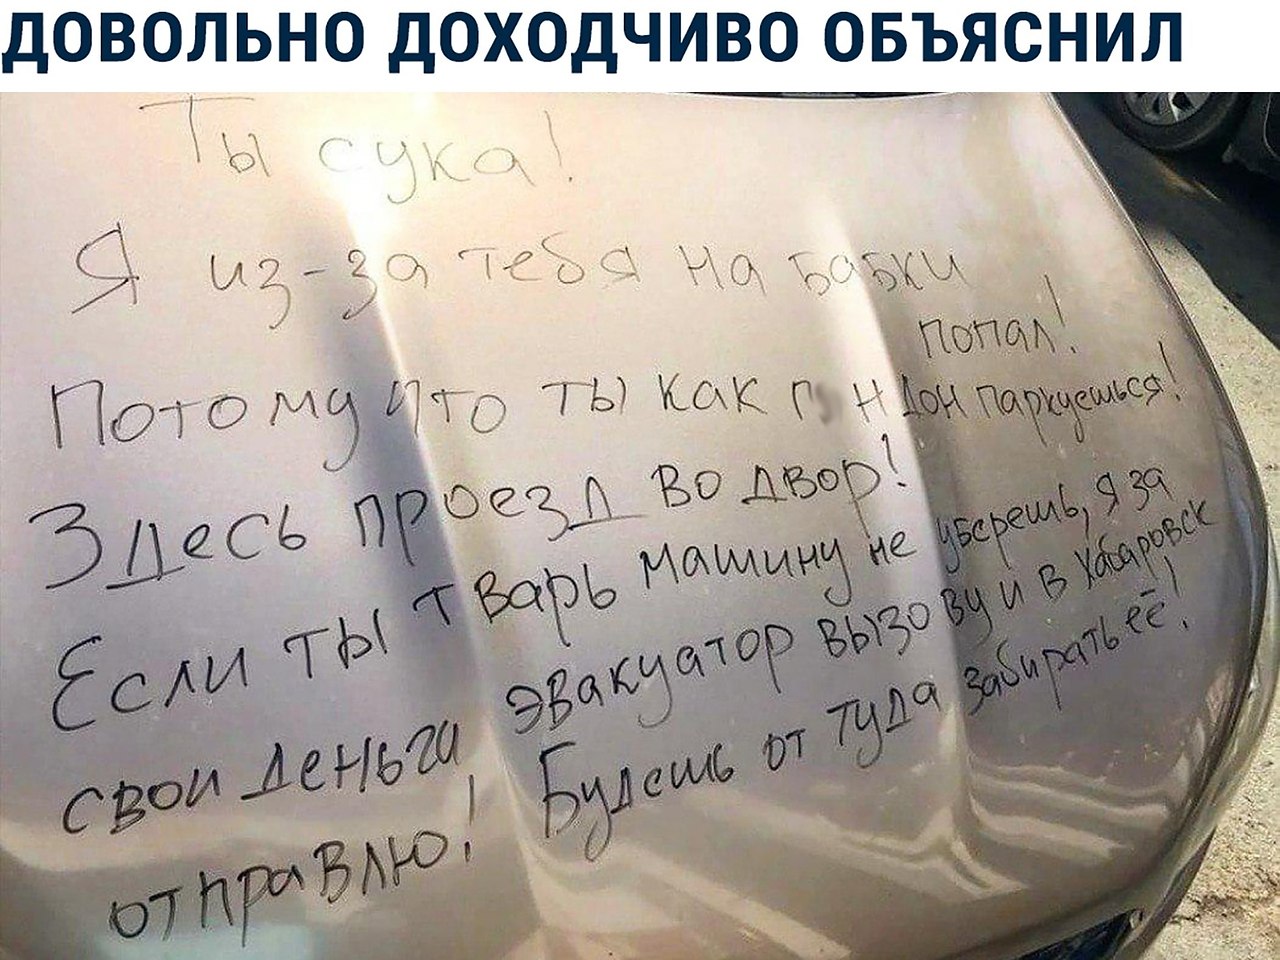 ДОВОЛЬНО ДОХОДЧИВО ОБЪЯСНИЛ
Ты сука!
Я из-за тебя на бабки
попал!
Потому что ты как г ндон паркуешься!
Здесь проезд во двор!
Если ты тварь машину не уберешь, я за
свои деньги эвакуатор вызову и в Хабаровск
отправлю! Будешь от туда забирать её!